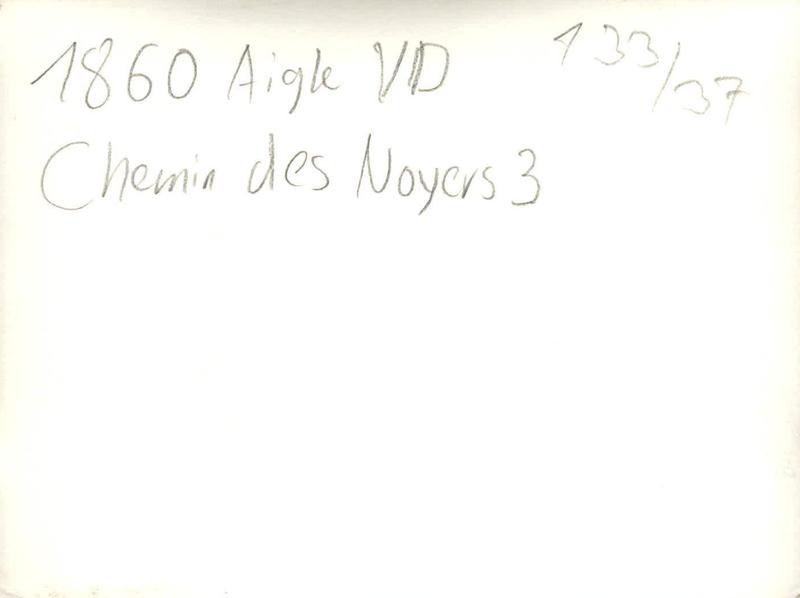 1860 Aigle VD 133/37
Chemin des Noyers 3